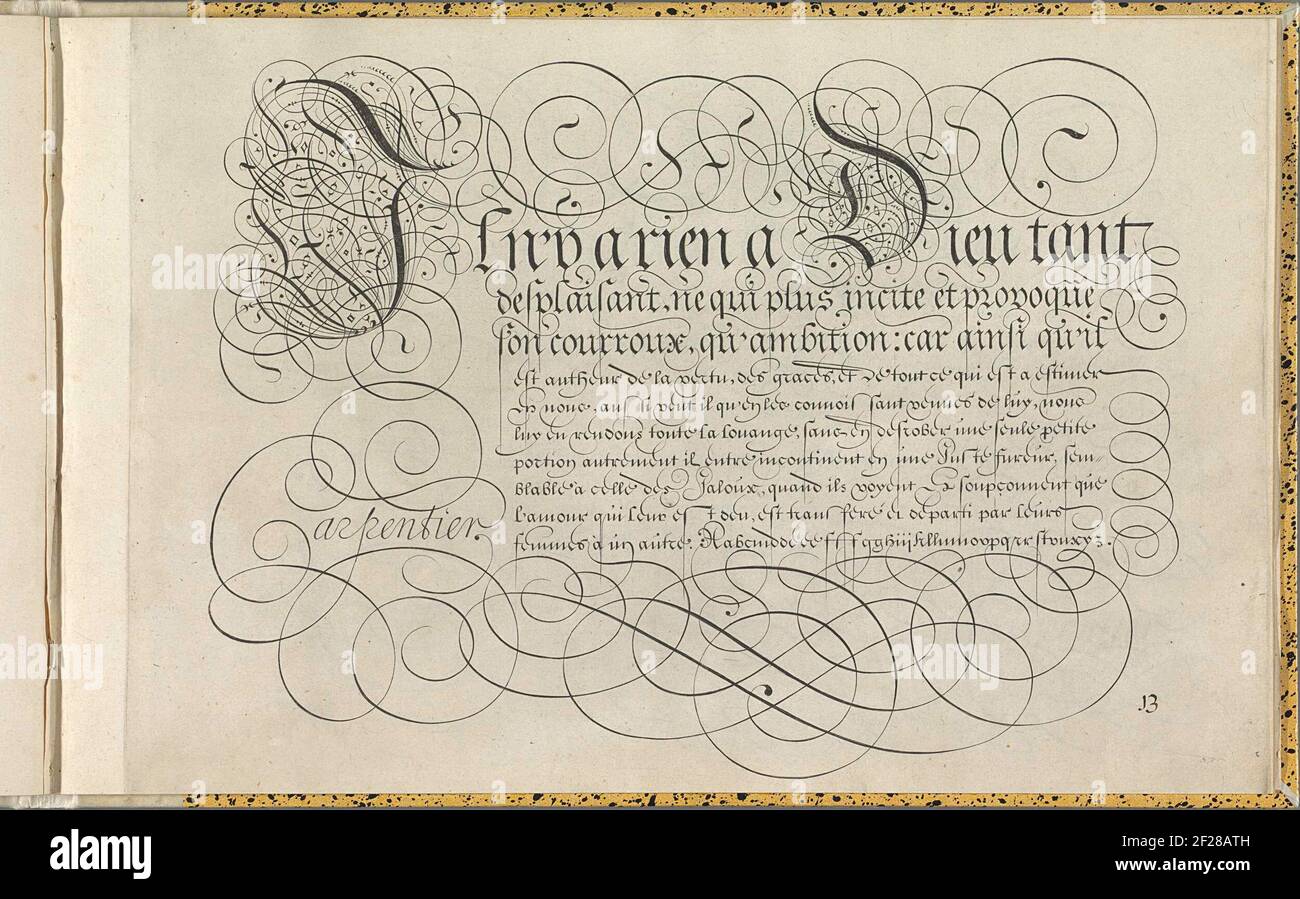 Il n'y a rien a Dieu tant
desplaisant, ne qui plus incite et provoque
son courroux, qu'ambition: car ainsi qu'il
est autheur de la vertu, des graces, et de tout ce qui est a estimer
en nous, aussi veut il qu'en les connoissant venues de luy, nous
luy en rendons toute la louange, sans en desrober une seule petite
portion autrement il entre incontinent en une juste fureur, sem-
blable a celle des Jaloux, quand ils voyent et soupçonnent que
l'amour qui leur est deu, est transfere et departi par leurs
femmes a un autre.
Carpentier.
13
alamy
alamy
Image ID: 2F28ATH
www.alamy.com